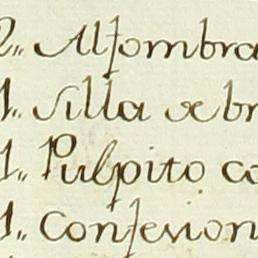 2,, Alfombra
1,, silla de br
1,, Pulpito co
1,, Confesion